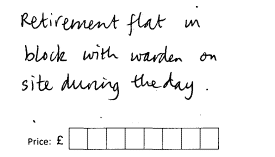 Retirement flat in
block with warden on
site during the day.
Price: £